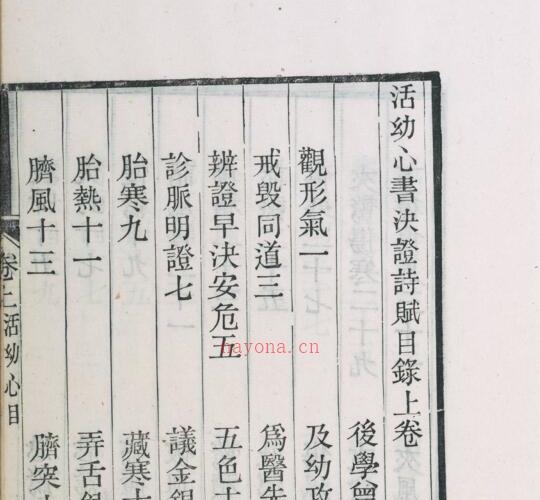 活幼心書決證詩賦目錄上卷
後學曾
觀形氣一
及幼攻
戒毀同道三
為醫先
辨證早決安危五
五色
診脈明證七
議金銀
胎寒九
藏寒十
胎熱十一
弄舌
臍風十三
臍突
卷二活幼心目
hayona.cn